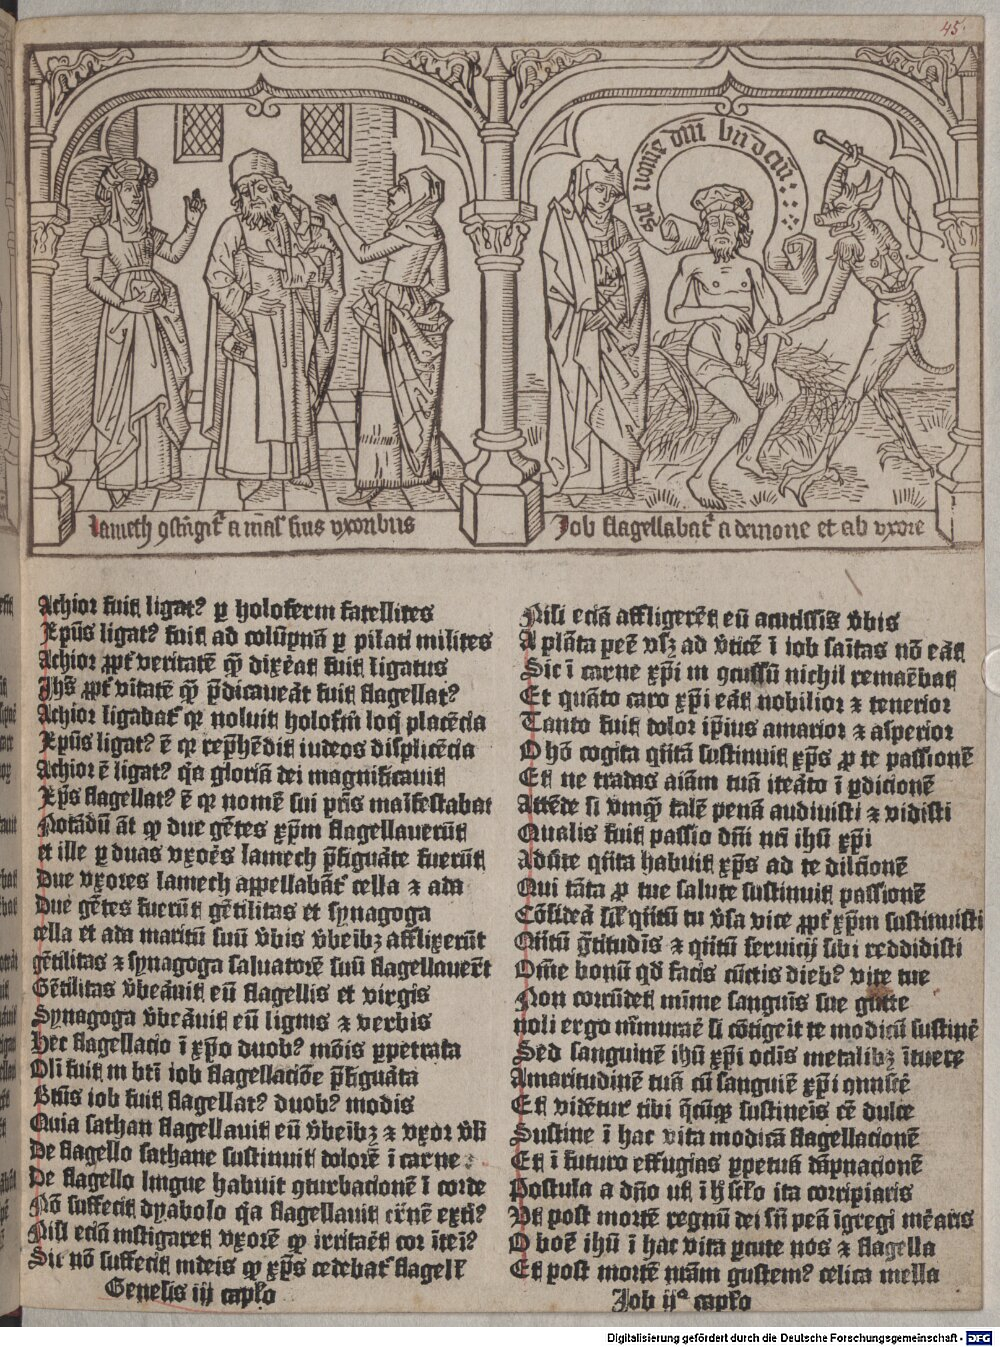 45
sic nomē dñi bñdcm̄
Lameth ↄstri̅git᷑ a mal' suis vxoribus
Job flagellabat᷑ a demone et ab vxore
Achior fuit ligatꝰ ꝑ holofern satellites
Xp̄us ligatꝰ fuit ad colūpnā ꝑ pilati milites
Achior ꝓpt᷑ veritatē qͣ dixerat fuit ligatus
Jhs̄ ꝓpt᷑ v̄itatē qͣ p̄dicauerat fuit flagellatꝰ
Achior ligabat᷑ qꝛ noluit holoferni loqͥ placēcia
Xp̄us ligatꝰ ē qꝛ rep̄hēdit iudeos displicēcia
Achior ē ligatꝰ qͣ gloriā dei magnificauit
Xp̄s flagellatꝰ ē qꝛ nomē sui pr̄is māifestabat
Notādū āt qꝫ due gētes xp̄m flagellauerūt
et ille ꝑ duas vxores lamech p̄figurate fuerūt
Due vxores lamech appellabāt᷑ cella ⁊ ada
Due gētes fuerūt gētilitas et synagoga
cella et ada maritū suū v̄bis v̄beribꝫ afflixerūt
gētilitas ⁊ synagoga saluatorē suū flagellauerūt
Gētilitas v̄berauit eū flagellis et virgis
Synagoga v̄berauit eū lignis ⁊ verbis
Hec flagellacio ī xp̄o duobꝰ mōis ꝑpetrata
Olī fuit in bt̄i iob flagellaciōe p̄figurata
Bt̄us iob fuit flagellatꝰ duobꝰ modis
Quia sathan flagellauit eū v̄beribꝫ ⁊ vxor v̄b
De flagello sathane sustinuit dolorē ī carne
De flagello lingue habuit ↄturbacionē ī corde
Nō suffecit dyabolo qͣ flagellauit carnē extiꝰ
Nisi eciā instigaret vxorē qꝫ irritaret cor īteiꝰ
Sic nō suffecit iudeis qꝫ xp̄s cedebat᷑ flagell
Genesis iiij caplo
Nisi eciā affligerēt eū acutissis v̄bis
A plāta pedē vsꝫ ad v̄ticē ī iob sāitas nō erat
Sic ī carne xp̄i in ↄcussū nichil remanebat
Et quāto caro xp̄i erat nobilior ⁊ tenerior
Tanto fuit dolor ip̄ius amarior ⁊ asperior
O hō cogita qͣtā sustinuit xp̄s ꝓ te passionē
Et ne tradas aīam tuā iterato ī ꝑdicionē
Attēde si vnqͣ talē penā audiuisti ⁊ vidisti
Qualis fuit passio dn̄i nr̄i ihū xp̄i
Aduerte qͣtā habuit xp̄s ad te dilcionē
Qui tātā ꝓ tue salute sustinuit passionē
Cōsiderā sil' qͣtū tu v̄sa vice ꝓpt᷑ xp̄m sustinuisti
Qͣtū gͣtitudīs ⁊ qͣtū seruicij sibi reddidisti
Om̄e bonū qd̄ facis cūctis diebꝰ vite tue
Non corrn̄det mīme sanguīs sue gutte
noli ergo mͬmurare si cōtigerit te modicū sustinē
Sed sanguinē ihū xp̄i oclīs metalibꝫ ītuere
Amaritudinē tuā cū sanguīe xp̄i misce
Et videtur tibi qͥcūqꝫ sustineis eē dulce
Sustine ī hac vita modicā flagellacionē
Et ī futuro effugias ꝑpetuā dāpnacionē
Postula a dn̄o ut ī h' sclo ita corripiaris
Vt post mortē regnū dei sn̄ pena īgredi merearis
O bone ihū ī hac vita ꝑcute nos ⁊ flagella
Et post mortē nr̄am gustemꝰ celica mella
Job ijͦ caplo
Digitalisierung gefördert durch die Deutsche Forschungsgemeinschaft - DFG